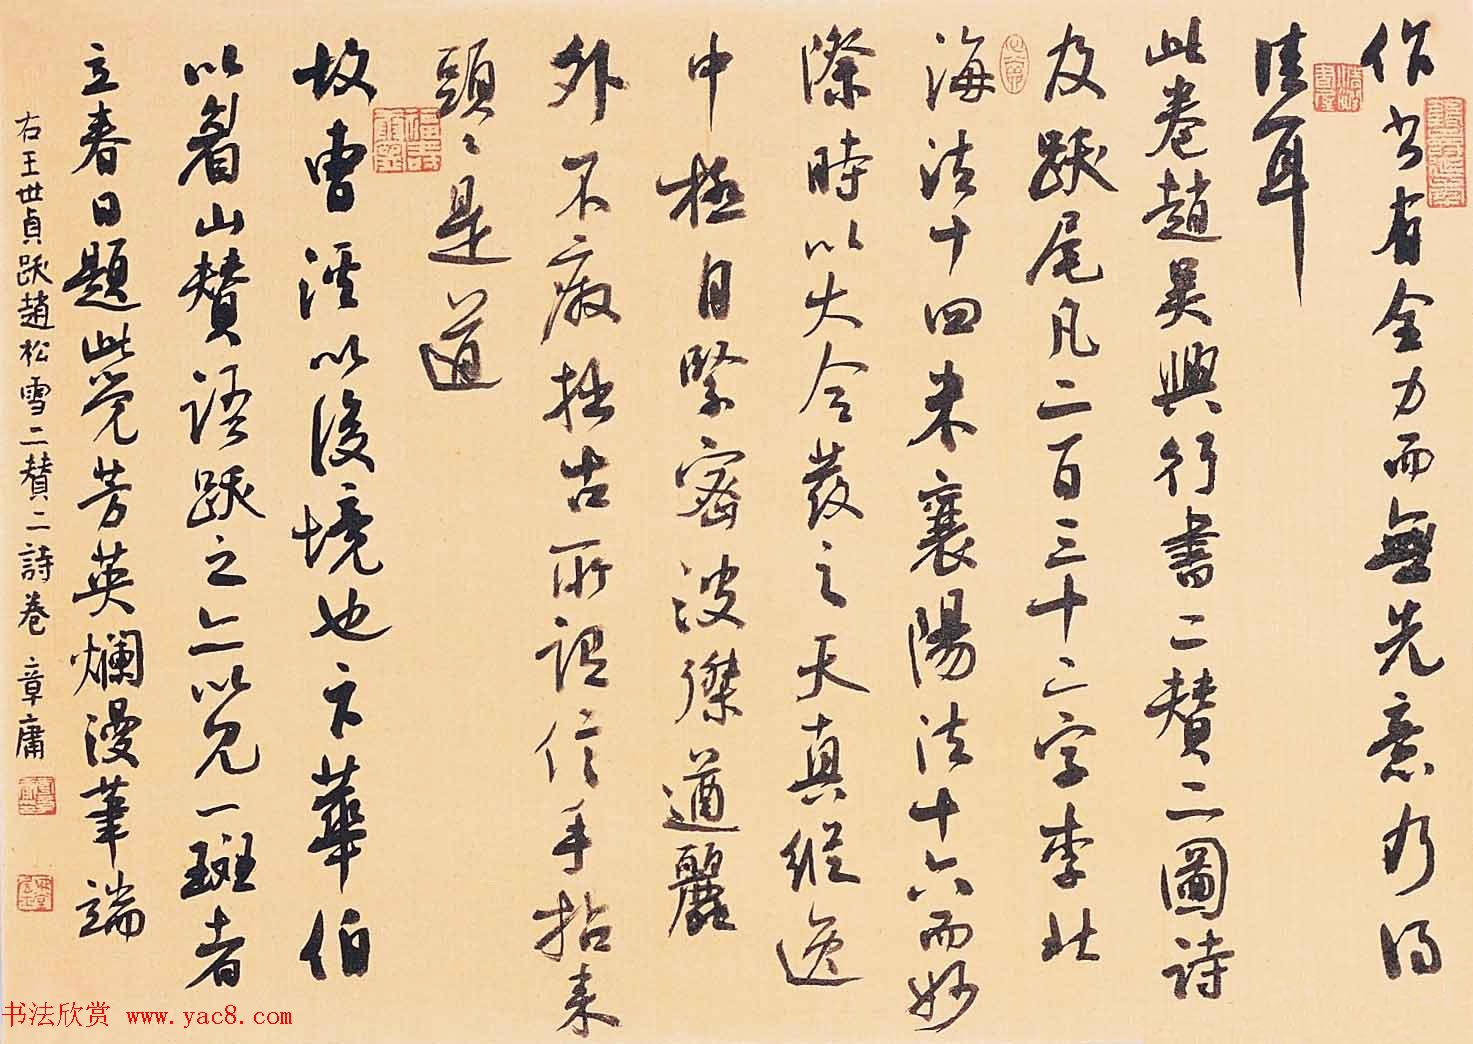 作書有全力而無先意乃得
佳耳
此卷趙吳興行書二贊二圖詩
及跋尾凡二百三十二字李北
海法十四米襄陽法十六而妙
際時以大令發之天真縱逸
中極自緊密波磔遒麗
外不廢拙古所謂信手拈来
頭〻是道
故曹溪以後境也下華伯
以眉山贊語跋之亦以見一斑者
立春日題此覺芳英爛漫筆端
右王世貞跋趙松雪二贊二詩卷 章庸
书法欣赏 www.yac8.com